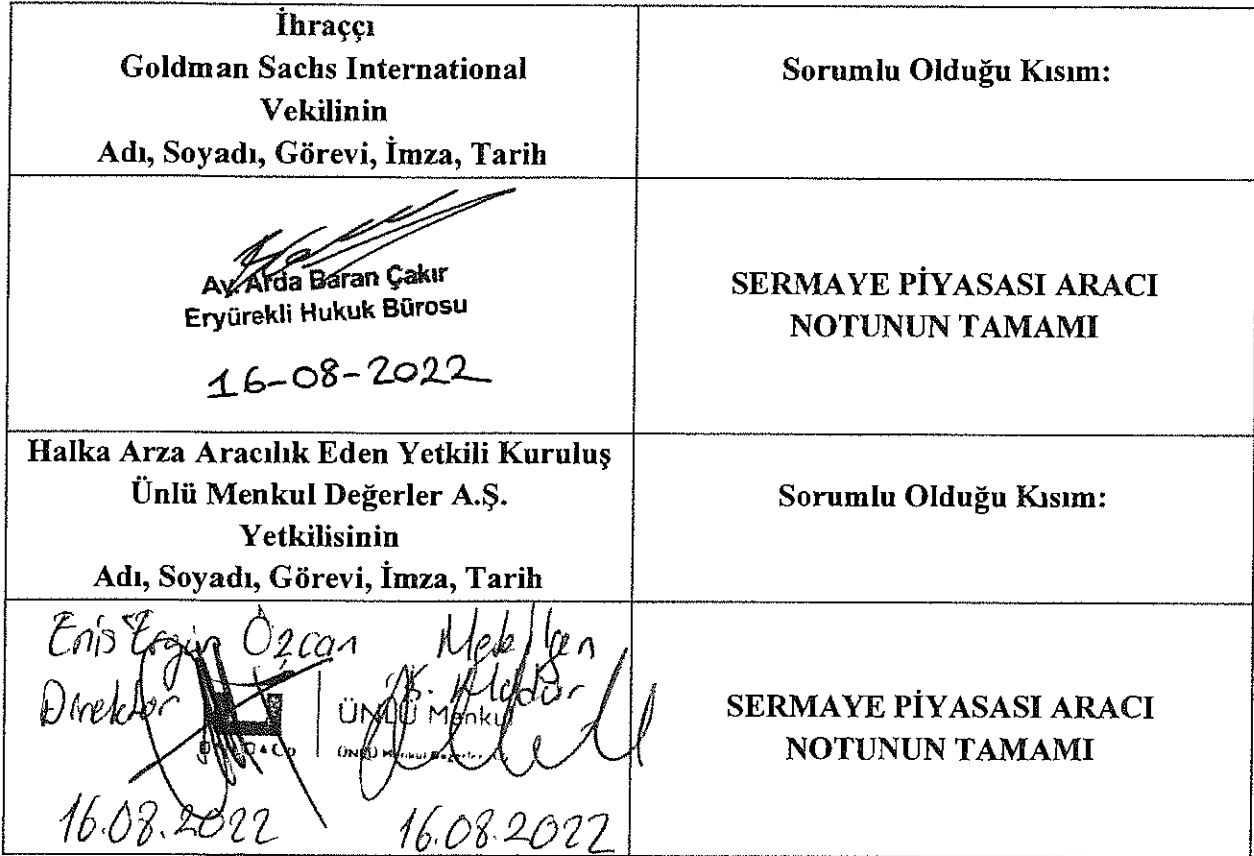 İhraççı
Goldman Sachs International
Vekilinin
Adı, Soyadı, Görevi, İmza, Tarih
Sorumlu Olduğu Kısım:
Av. Arda Baran Çakır
Eryürekli Hukuk Bürosu
16-08-2022
SERMAYE PİYASASI ARACI
NOTUNUN TAMAMI
Halka Arza Aracılık Eden Yetkili Kuruluş
Ünlü Menkul Değerler A.Ş.
Yetkilisinin
Adı, Soyadı, Görevi, İmza, Tarih
Sorumlu Olduğu Kısım:
Enis Ergün Özcan
Direktör
ÜNLÜ Menkul
ÜNLÜ Menkul Değerler
16.08.2022
16.08.2022
SERMAYE PİYASASI ARACI
NOTUNUN TAMAMI